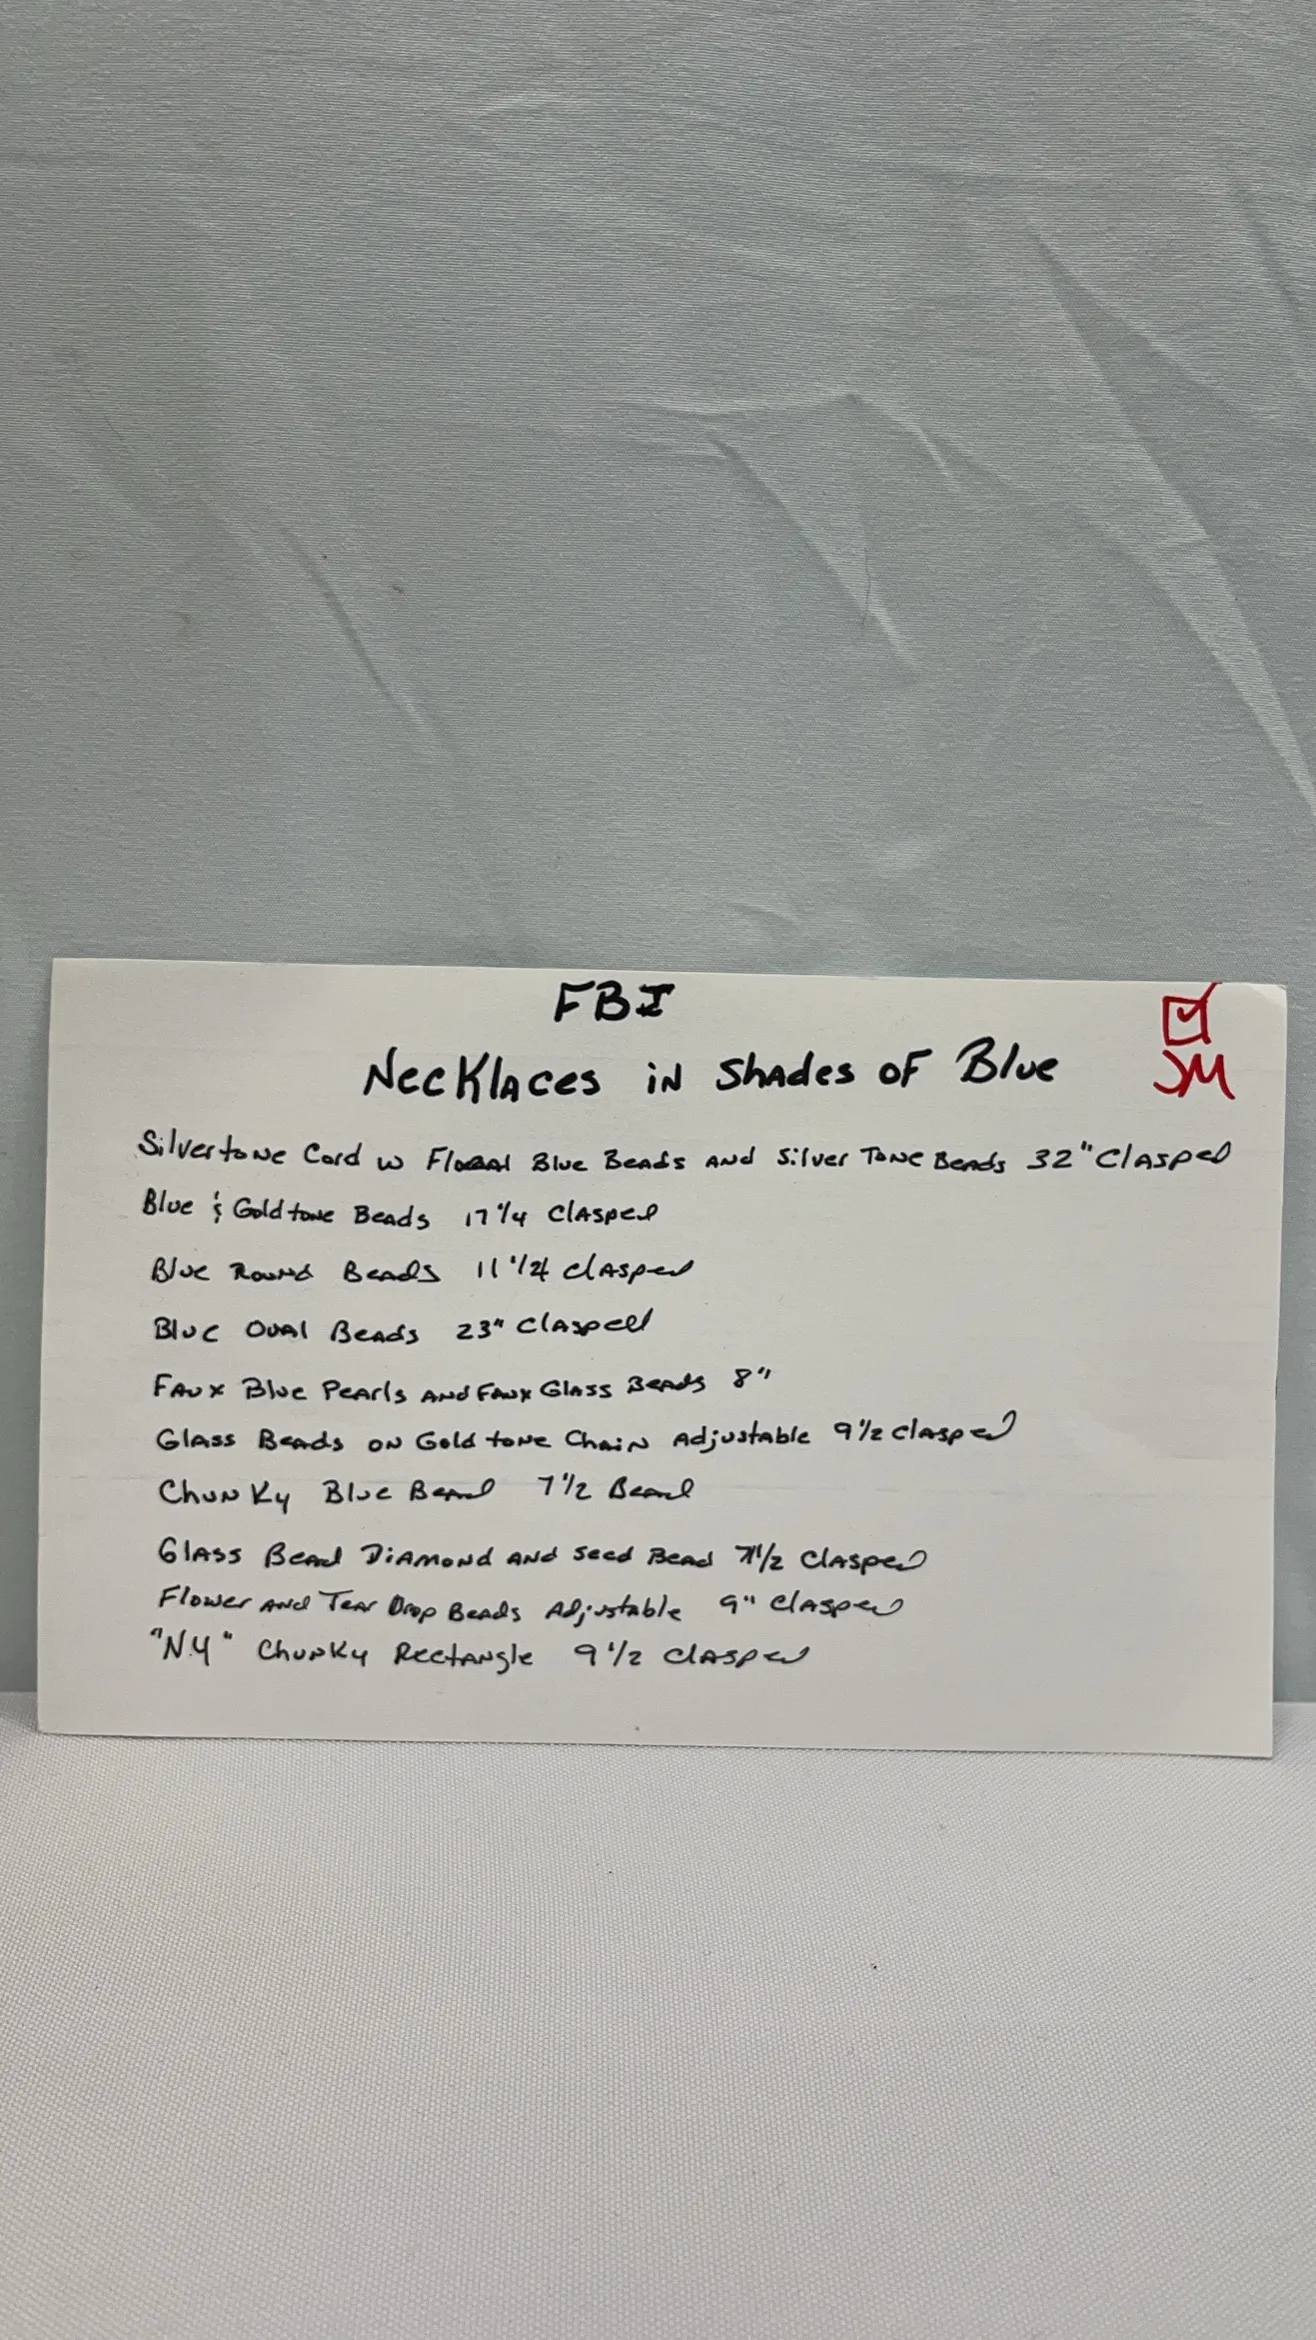 FBI
JM
Necklaces in Shades of Blue
Silvertone Cord w Floral Blue Beads and Silver Tone Beads 32" Clasped
Blue & Goldtone Beads 17 1/4 Clasped
Blue Round Beads 11 1/4 Clasped
Blue Oval Beads 23" Clasped
Faux Blue Pearls and Faux Glass Beads 8"
Glass Beads on Gold tone Chain Adjustable 9 1/2 Clasped
Chunky Blue Bead 7 1/2 Bead
Glass Bead Diamond and Seed Bead 7 1/2 Clasped
Flower and Tear Drop Beads Adjustable 9" Clasped
"N.Y" Chunky Rectangle 9 1/2 Clasped